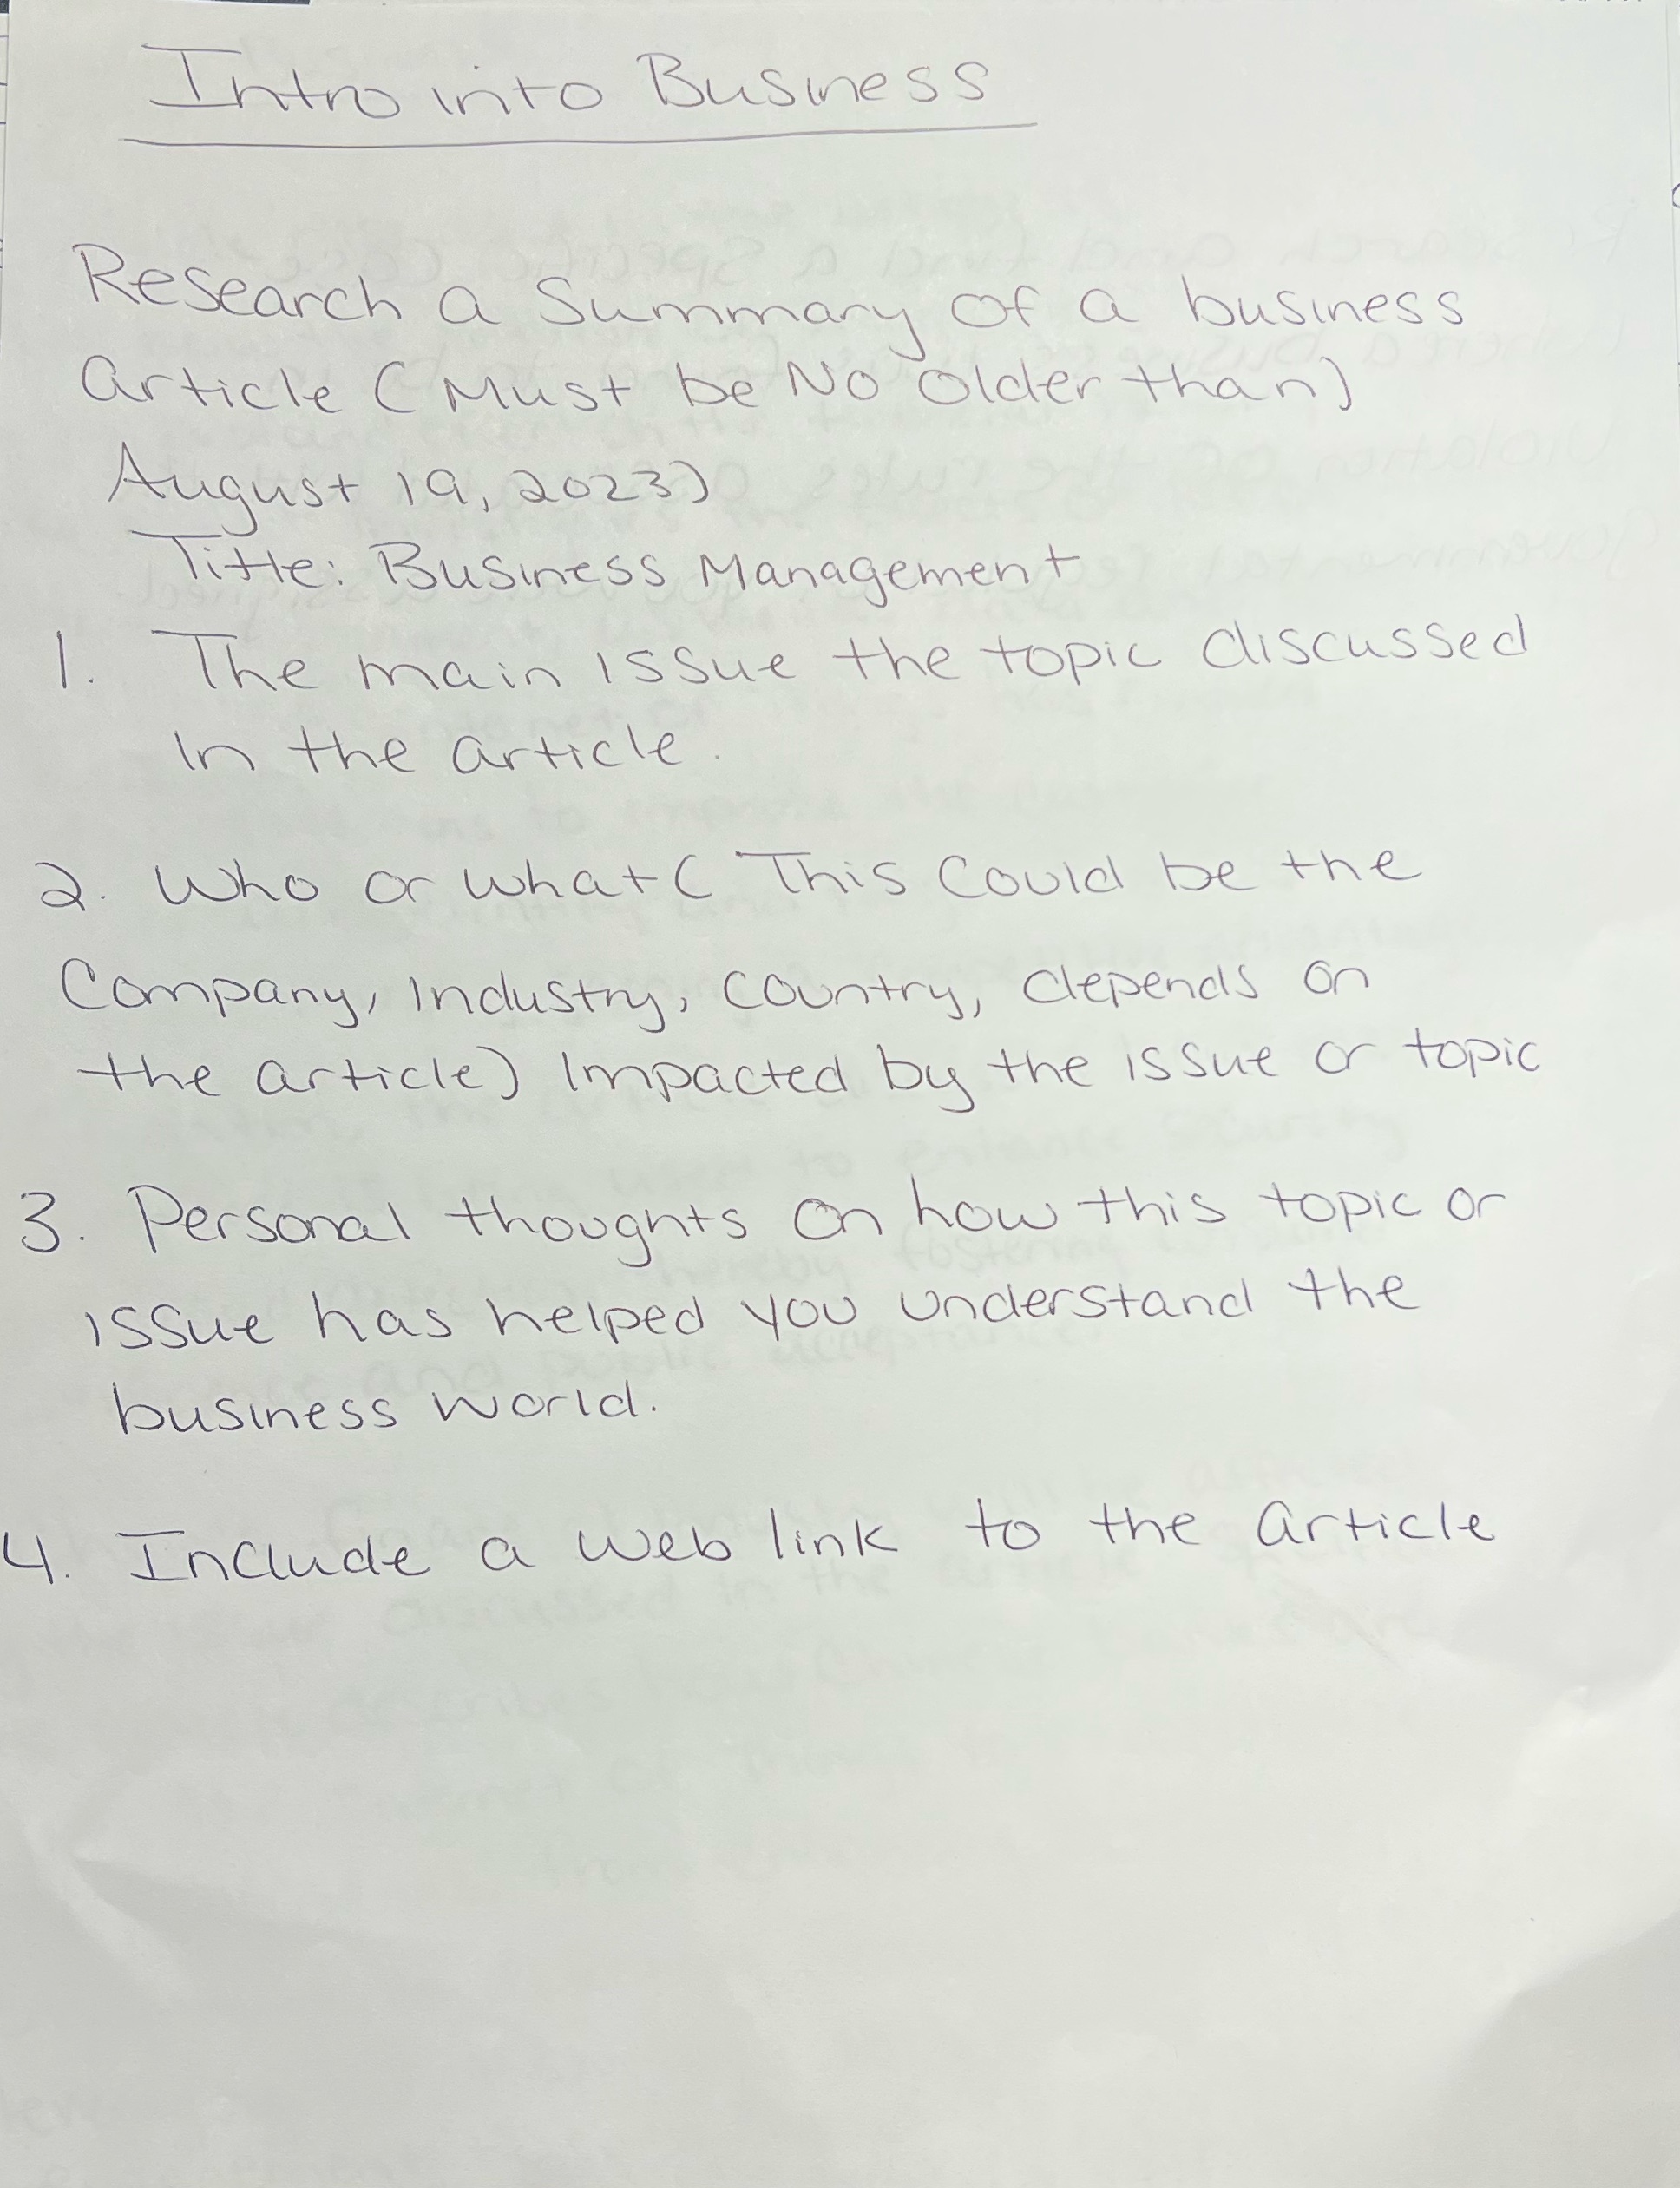 Intro into Business
Research a Summary of a business
article (Must be No older than)
August 19, 2023)
Title: Business Management
1. The main issue the topic discussed
in the article.
2. Who or what ( This Could be the
Company, Industry, Country, depends on
the article) Impacted by the issue or topic
3. Personal thoughts on how this topic or
issue has helped you understand the
business world.
4. Include a web link to the article